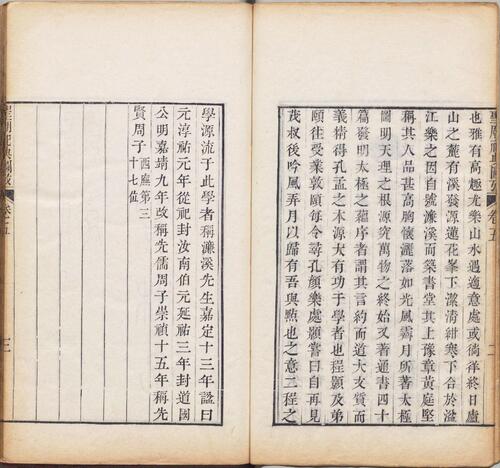 也雅有高趣尤樂山水遇適意處或徜徉終日廬
山之麓有溪發源蓮花峯下潔清紺寒下合於湓
江樂之因自號濂溪而築書堂其上豫章黃庭堅
稱其人品甚高胸懷灑落如光風霽月所著太極
圖明天理之根源究萬物之終始又著通書四十
篇發明太極之蘊序者謂其言約而道大文質而
義精得孔孟之本源大有功于學者也程顥及弟
頤往受業敦頤每令尋孔顏樂處顥嘗曰自再見
茂叔後吟風弄月以歸有吾與點也之意二程之
學源流于此學者稱濂溪先生嘉定十三年諡曰
元淳祐元年從祀封汝南伯元延祐三年封道國
公明嘉靖九年改稱先儒周子崇禎十五年稱先
賢周子西廡第三十七位
卷十五
三